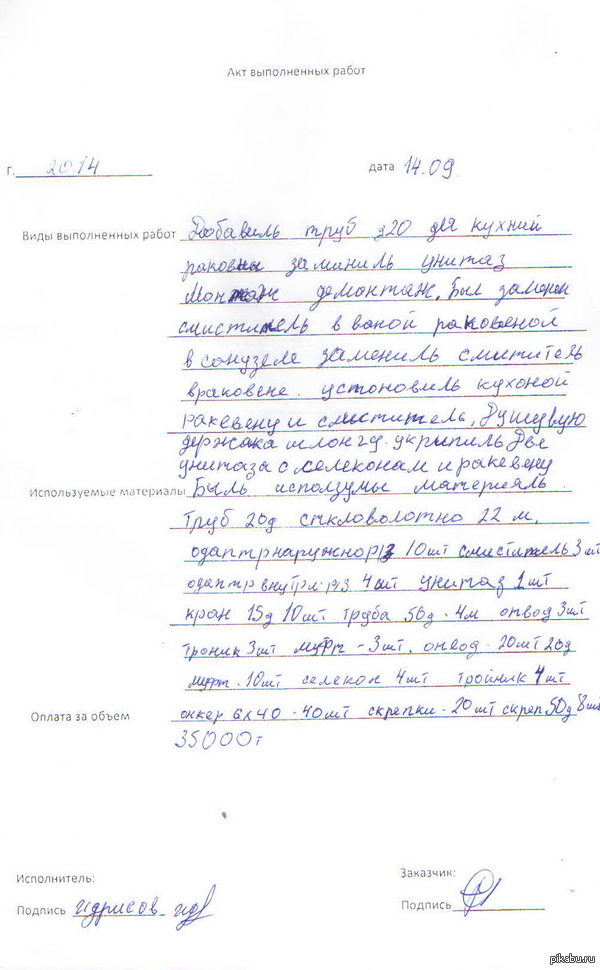 Акт выполненных работ
г. 2014 дата 14.09
Виды выполненных работ Добавиль труб д20 для кухний
раковны заминиль унитаз
монтаж демонтаж. Был заменен
смиститель в ваной раковеной
в санузеле замениль смититель
враковене. устоновиль кухоной
ракевену и смиститель. Душувую
держака шлонгу. укрипиль Две
унитаза с селеконам и ракевену
Используемые материалы Быль исползумы материяль.
Труб 20д сткловолотно 22 м.
одаптрнаружно р 10шт смиститель 3шт
одаптр внутри. р/з 4шт унитаз 1шт
кран 15д 10шт труба 50д. 4м отвод 3шт
троник 3шт муфт - 3шт. отвод - 20шт 20д
муфт. 10шт селекон 4шт тройник 4шт
Оплата за объем онкер 6х40 - 40шт скрепки - 20шт скреп 50д 8шт
35000т
Исполнитель: Заказчик:
Подпись идрисов Подпись
pikabu.ru